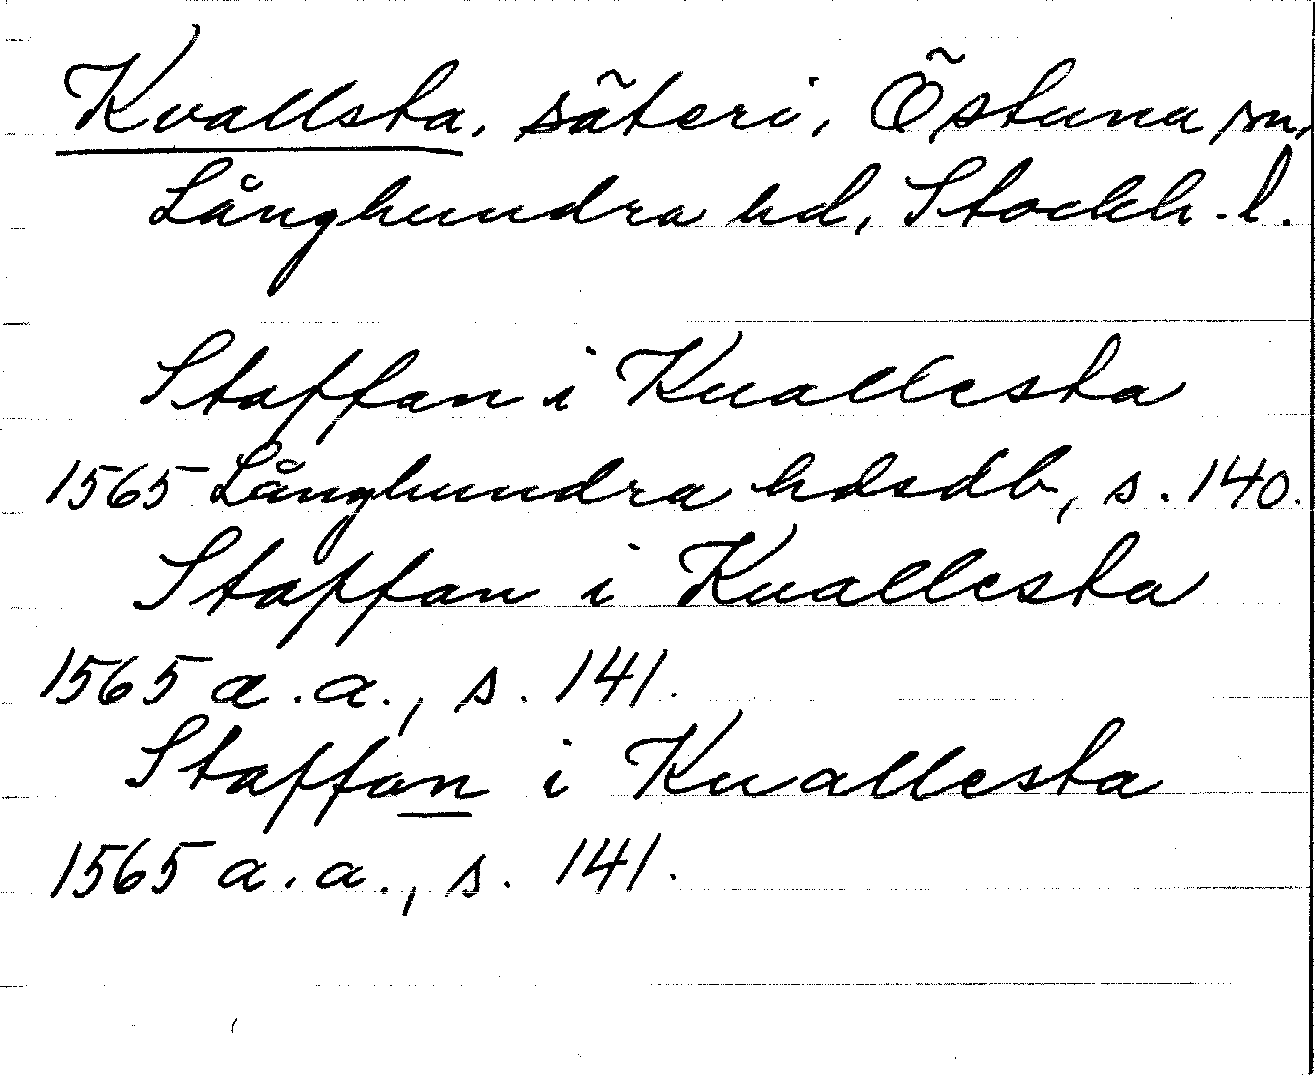 Kvallsta, säteri, Östuna sn,
Långhundra hd, Stockh. l.
Staffan i Kuallesta
1565 Långhundra hdsdb, s. 140.
Staffan i Kuallesta
1565 a.a., s. 141.
Staffan i Kuallesta
1565 a.a., s. 141.